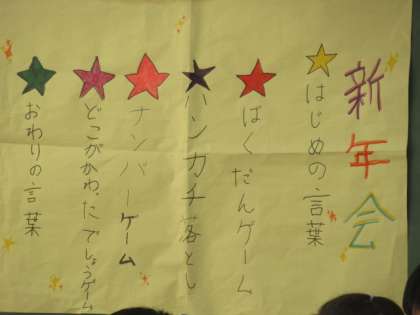 新年会
はじめの言葉
ばくだんゲーム
ハンカチ落とし
ナンバーゲーム
どこがかわったでしょうゲーム
おわりの言葉